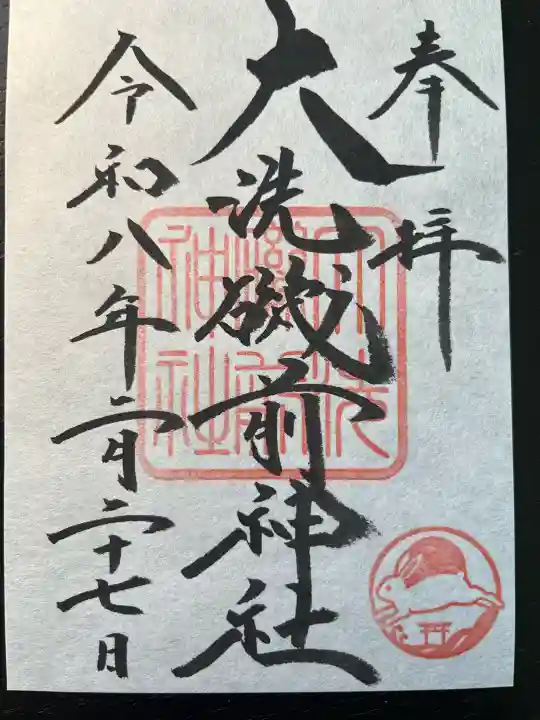 奉拝
大洗磯前神社
令和八年二月二十七日
大洗
磯前
神社